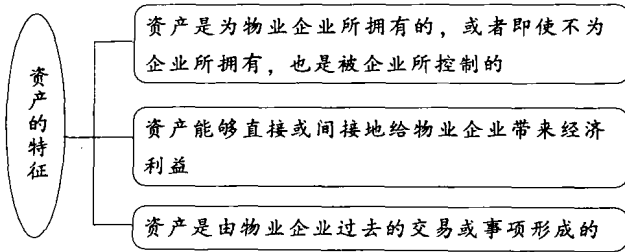 资产的特征
资产是为物业企业所拥有的，或者即使不为
企业所拥有，也是被企业所控制的
资产能够直接或间接地给物业企业带来经济
利益
资产是由物业企业过去的交易或事项形成的